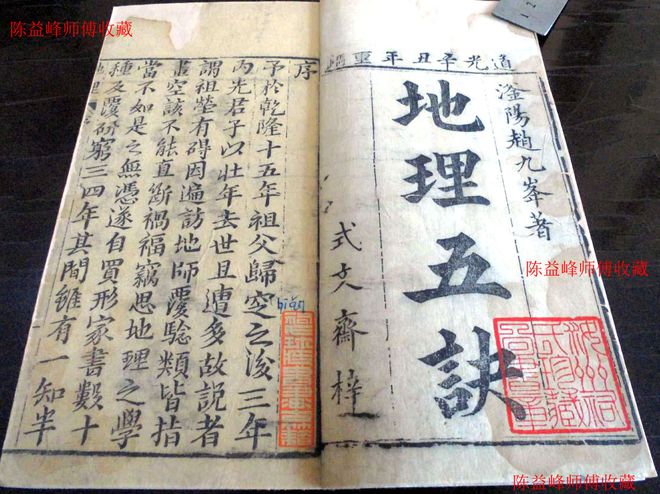 陈益峰师傅收藏
陈益峰师傅收藏
道光辛丑年重
滏陽趙九峯著
地理五訣
式文齋梓
陈益峰师傅收藏
序
予於乾隆十五年祖父歸空之後三年
内先君子以壯年去世且遭多故說者
謂祖塋有碍因遍訪地師覆驗類皆指
畫空談不能直斷禍福竊思地理之學
當不如是之無憑遂自買形家書數十
種反覆研窮三四年其間雖有一知半
陈益峰师傅收藏